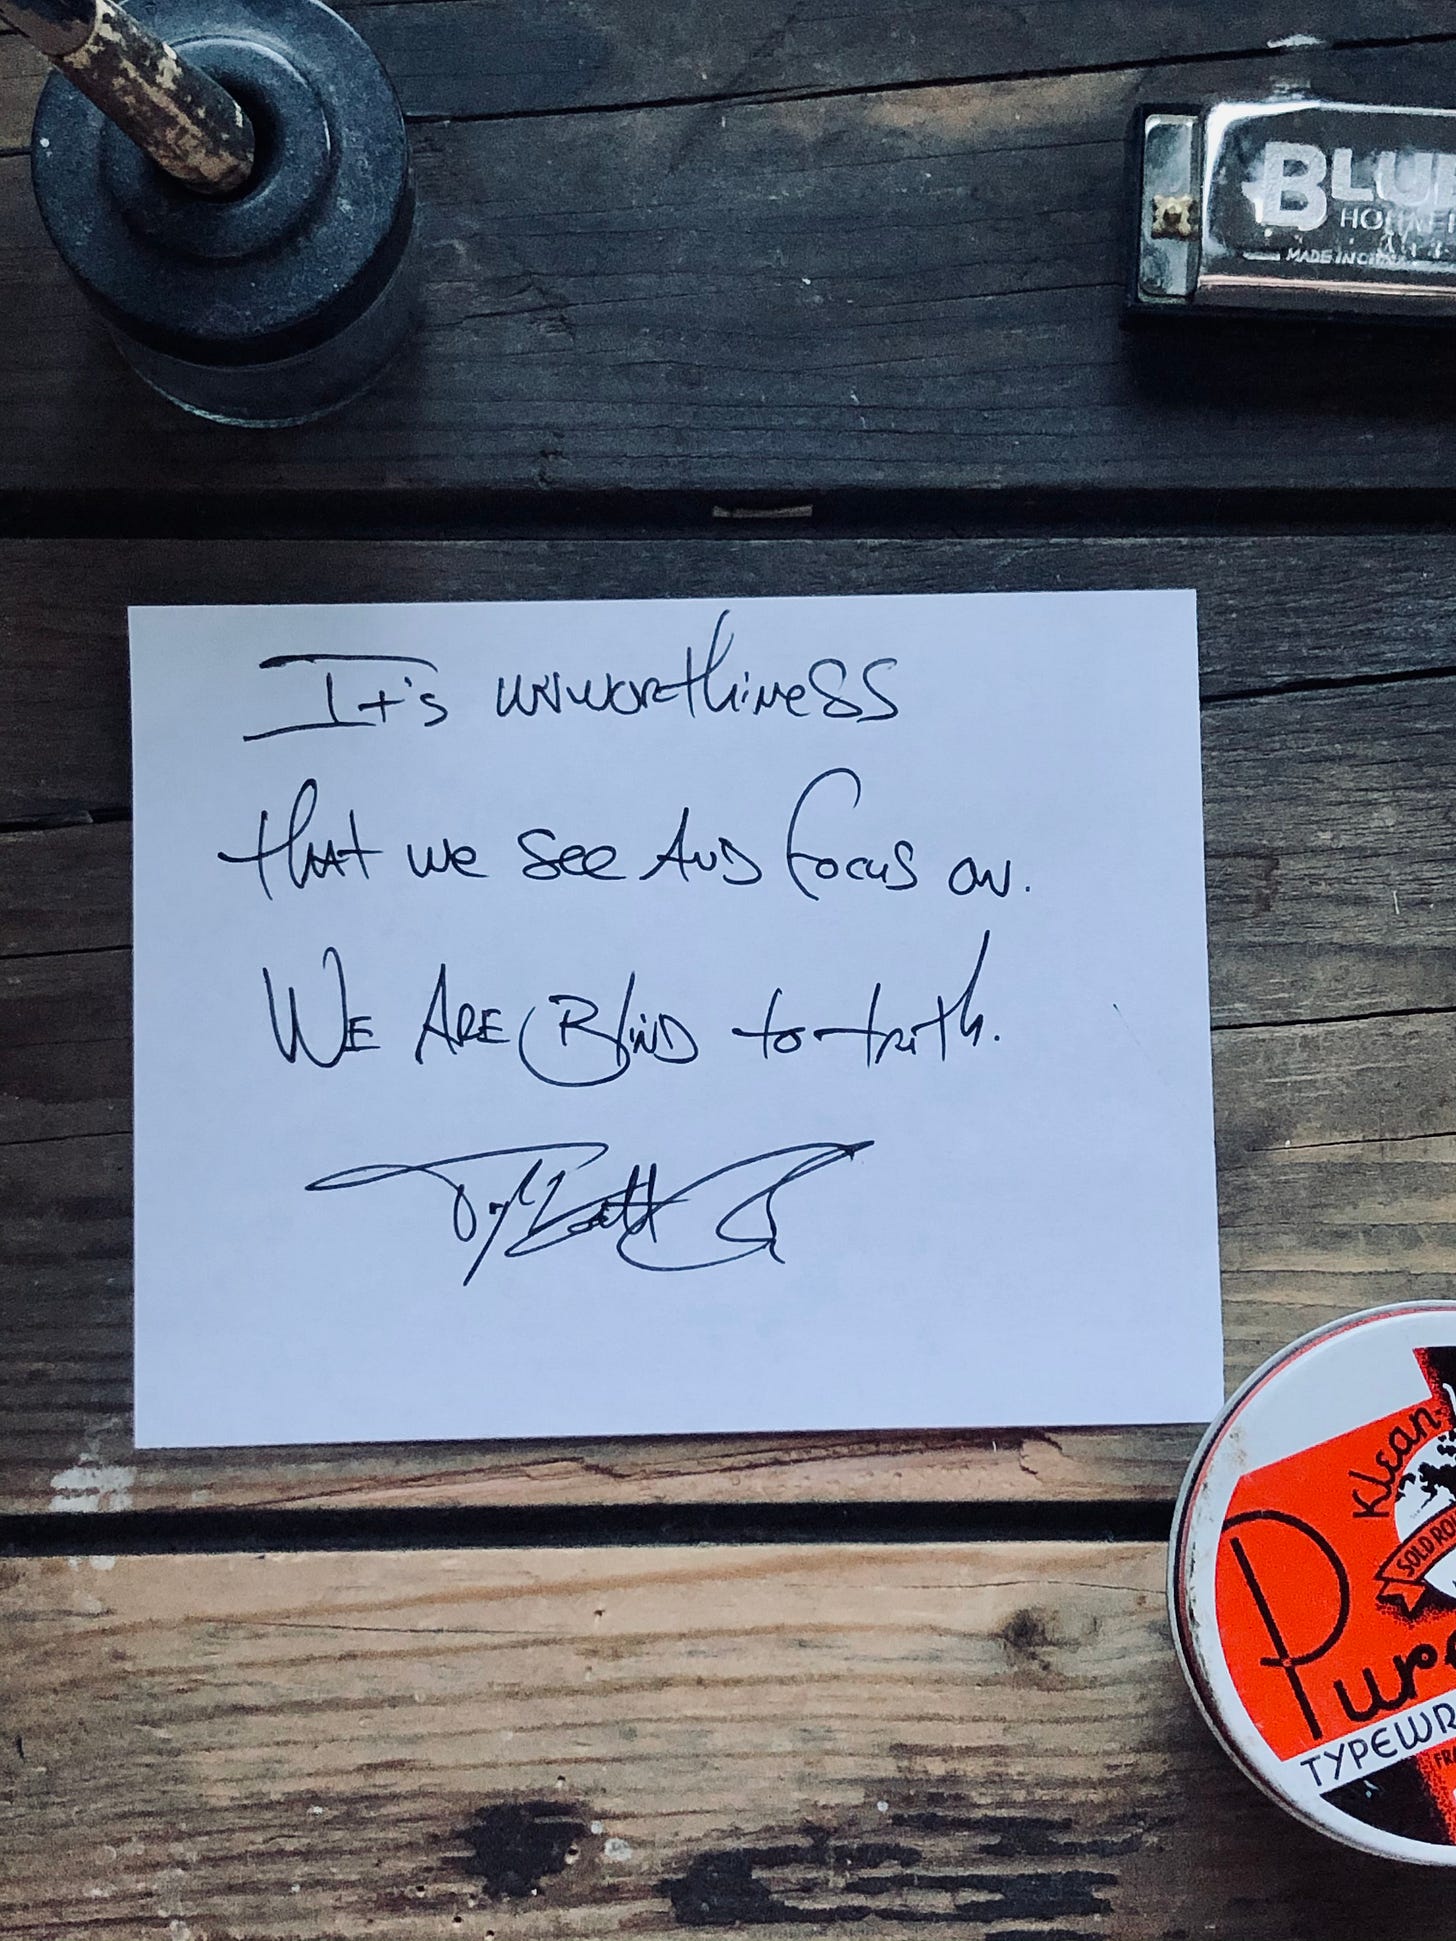 BLU
HOHNER
MADE IN CHINA
It's unworthiness
that we see and focus on.
We are blind to truth.
Klean
SOLD
Pure
TYPEWR